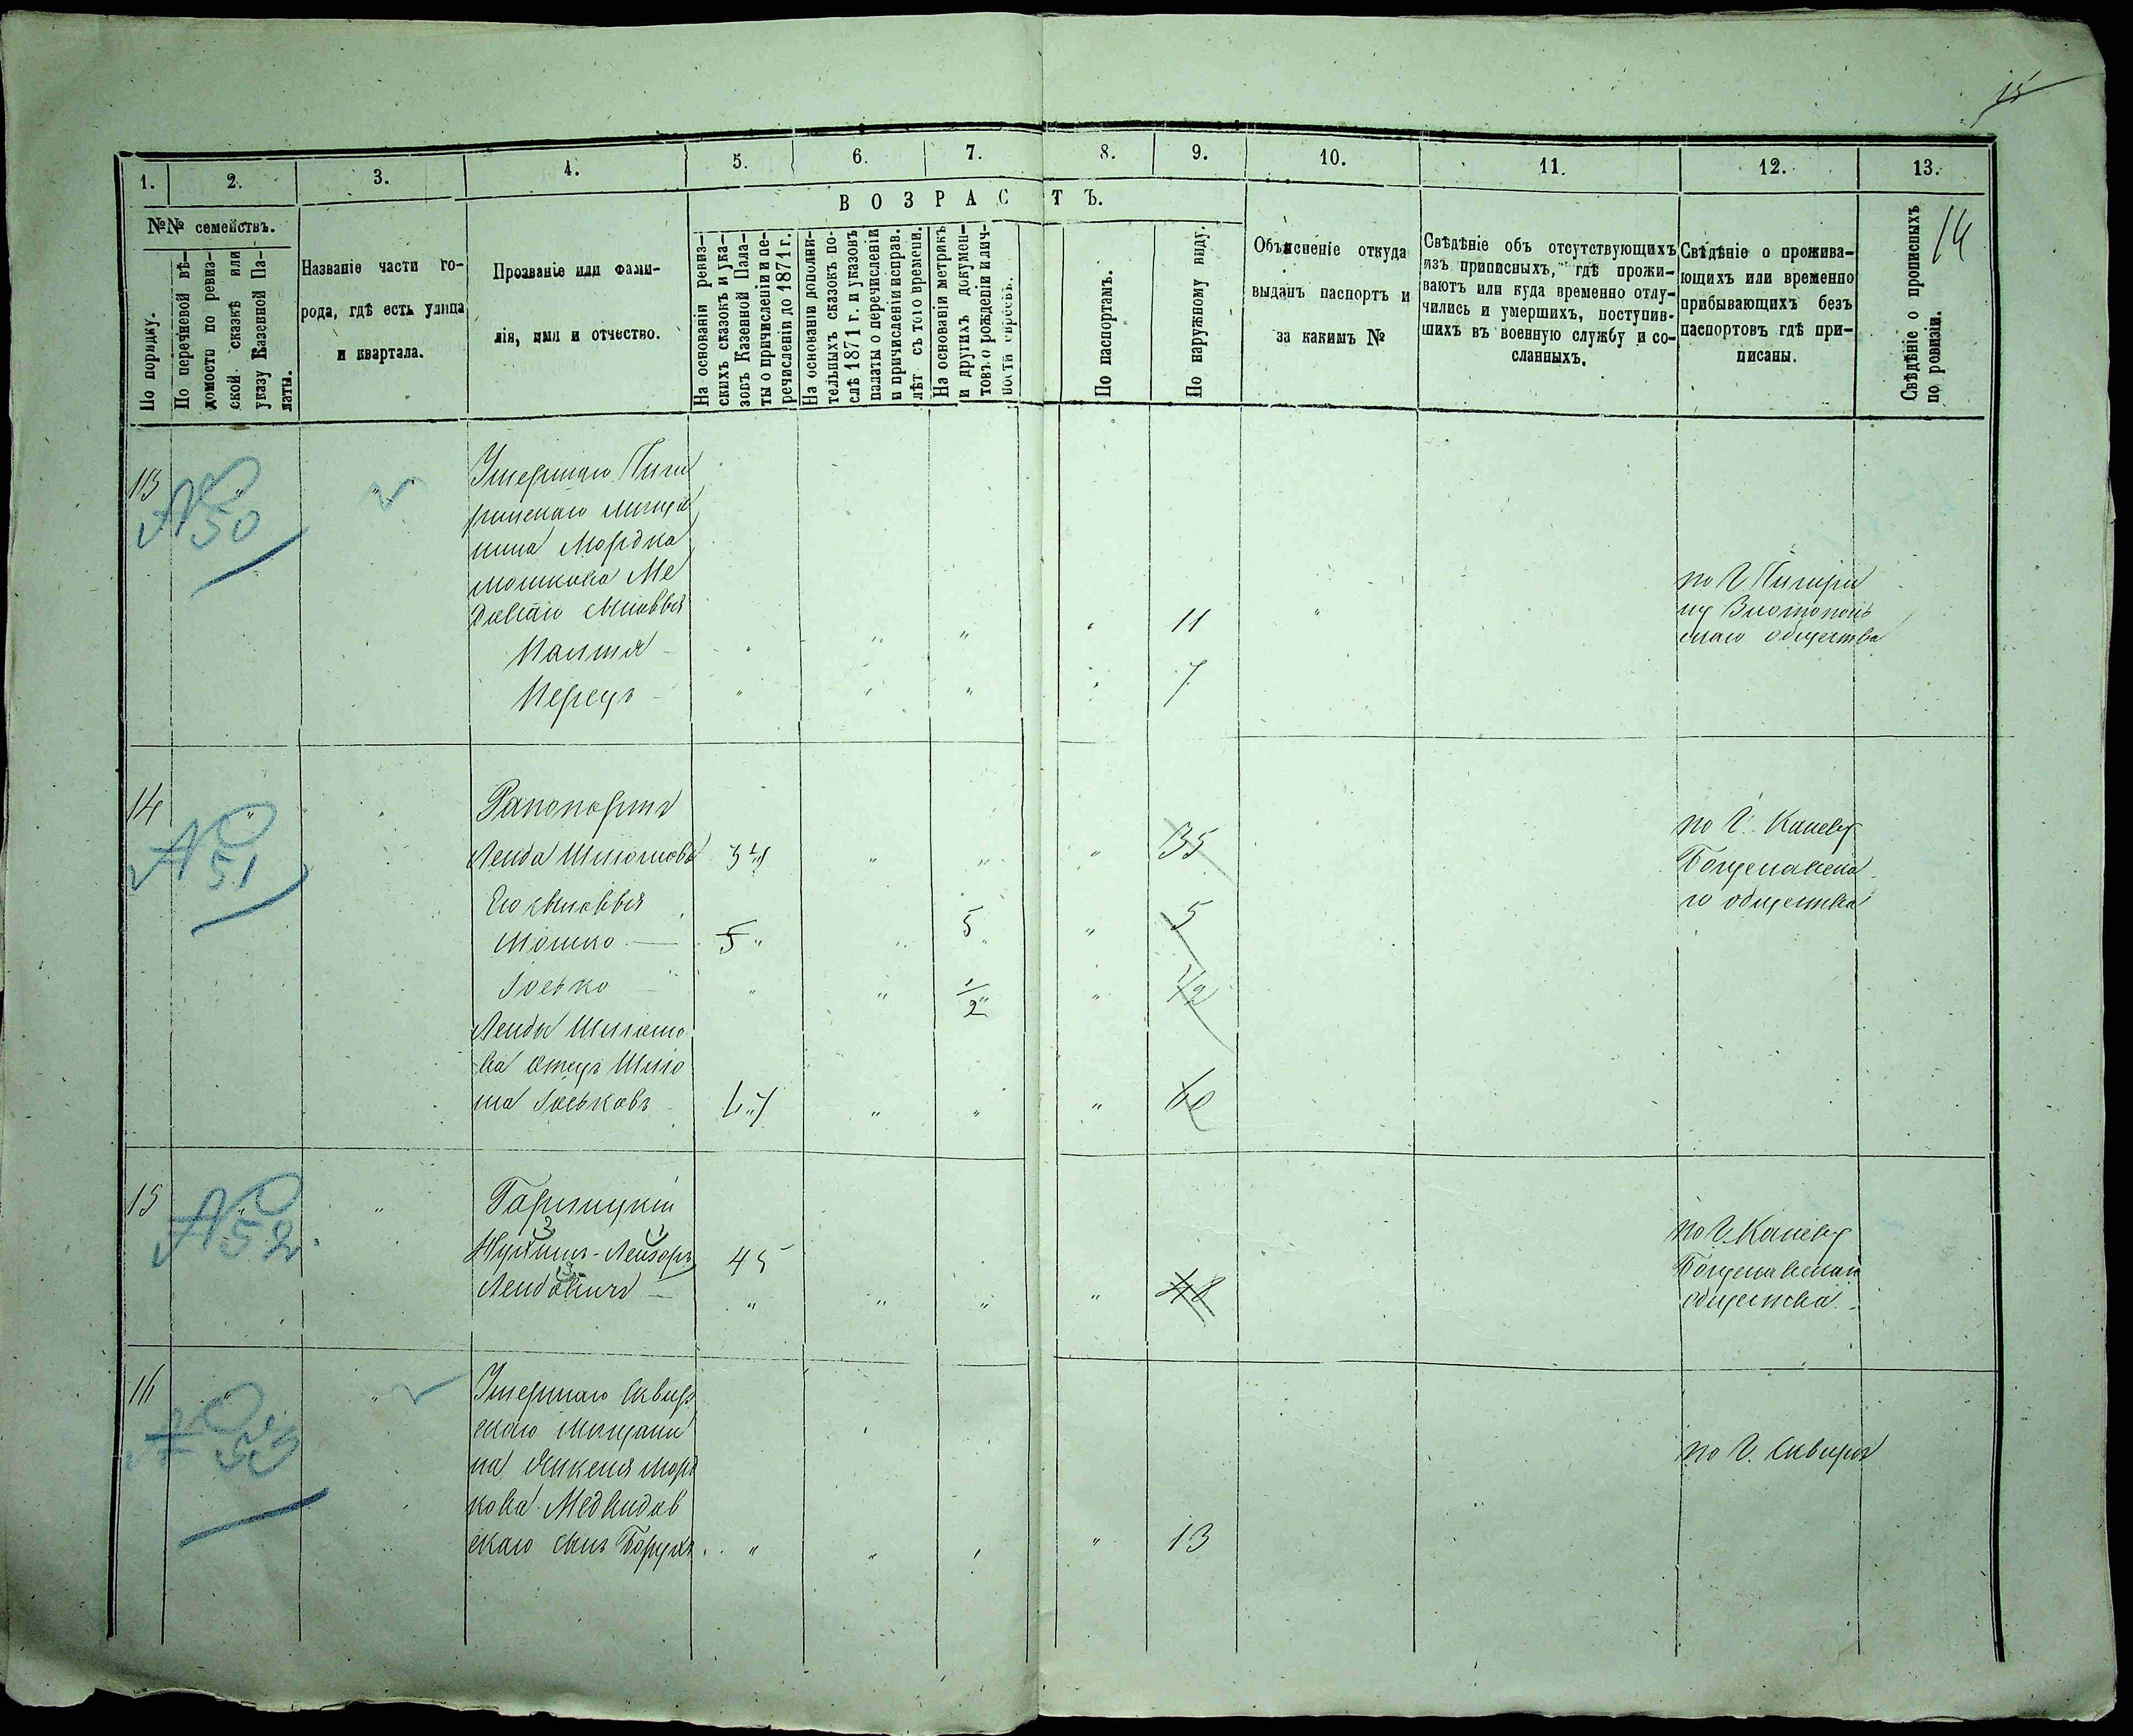 15
1.
2.
3.
4.
5.
6.
7.
8.
9.
10.
11.
12.
13.
№№ семействъ.
По порядку.
По перечневой вѣ-
домости по ревиз-
ской сказкѣ или
указу Казенной Па-
латы.
Названіе части го-
рода, гдѣ есть улица
и квартала.
Прозваніе или фами-
лія, имя и отчество.
ВОЗРАСТЪ.
На основаніи ревиз-
скихъ сказокъ и ука-
зовъ Казенной Пала-
ты о причисленіи и пе-
речисленіи до 1871 г.
На основаніи дополни-
тельныхъ сказокъ по-
слѣ 1871 г. и указовъ
палаты о перечисленіи
и причисленіи исправ.
лѣт съ того времени.
На основаніи метрикъ
и другихъ докумен-
товъ о рожденіи и лич-
ности евреевъ.
По паспортамъ.
По наружному виду.
Объясненіе откуда
выданъ паспортъ и
за какимъ №
Свѣдѣніе объ отсутствующихъ
изъ приписныхъ, гдѣ прожи-
ваютъ или куда временно отлу-
чились и умершихъ, поступив-
шихъ въ военную службу и со-
сланныхъ.
Свѣдѣніе о прожива-
ющихъ или временно
прибывающихъ безъ
паспортовъ гдѣ при-
писаны.
Свѣдѣніе о прописныхъ
по ревизіи.
14
113
№ 50
Умершаго Чиги
ринскаго мѣща
нина Мордка
Мошкова Ме
сыновья
11
Перецъ
7
по г. Чигири
ну
скаго общества
14
№ 51
Рапопортъ
Лейба Шлiомовъ
34
35
Его сыновья
Мошко
5
5
5
Іосько
1/2
1/2
Лейбы Шлiомо
ва отецъ Шлiо
ма Іоськовъ
60
по г. Каневу
Богуславска
го общества
15
№ 52.
3
1
Нухимъ-Лейзоръ
2
Лейбовичъ
45
48
по г. Каневу
Богуславскаго
общества.
16
№ 53
Умершаго Сквир
скаго мѣщани
на Янкеля Морд
кова Медвидов
скаго сынъ Борухъ
13
по г. Сквирѣ